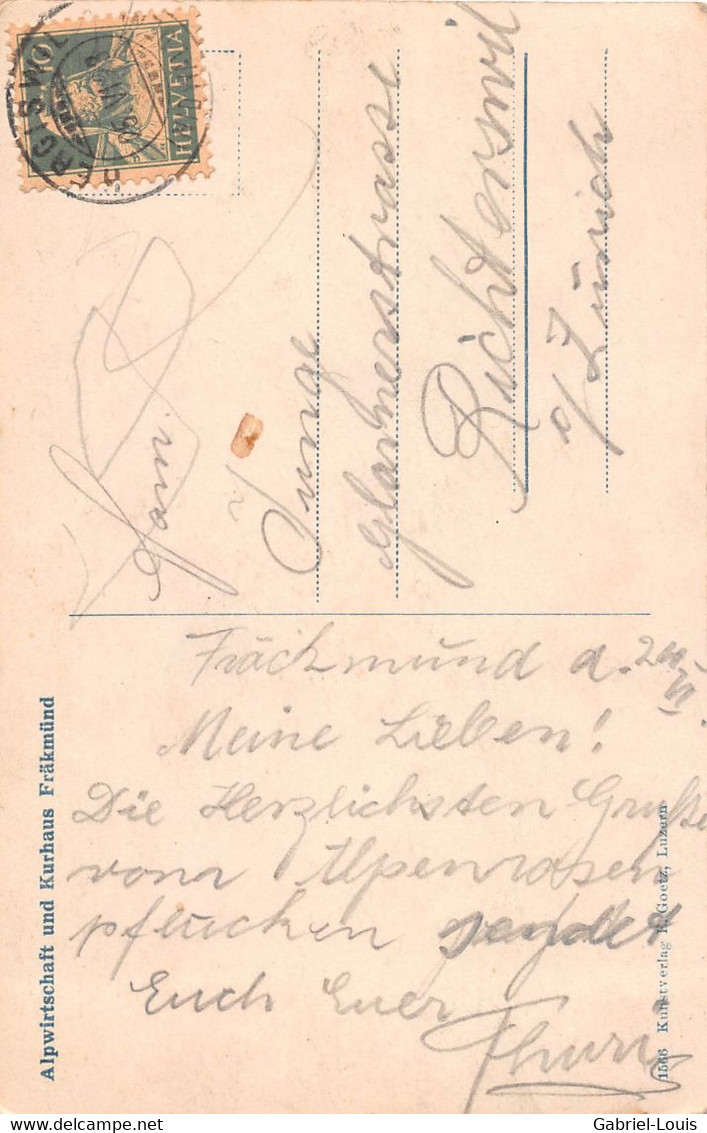 HELVETIA
10
HERGISWIL
Fam.
Junge
Glarnerstrasse
Richterswil
a/ Zürich
Fräckmünd d. 24.
VI
Meine Lieben!
Die Herzlichsten Grüsse
vom Alpenrosen
pflücken sendet
Euch Euer
Alpwirtschaft und Kurhaus Fräkmünd
1566 Kunstverlag E. Goetz, Luzern
Gabriel-Louis